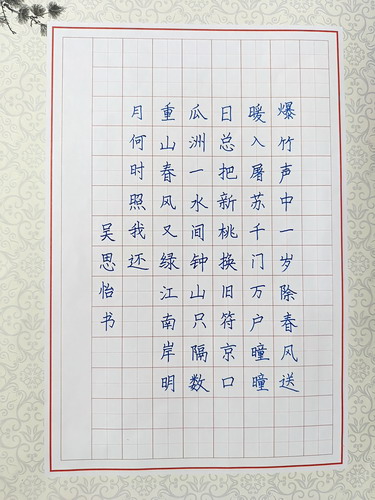 爆竹声中一岁除春风送
暖入屠苏千门万户曈曈
日总把新桃换旧符京口
瓜洲一水间钟山只隔数
重山春风又绿江南岸明
月何时照我还
吴思怡书